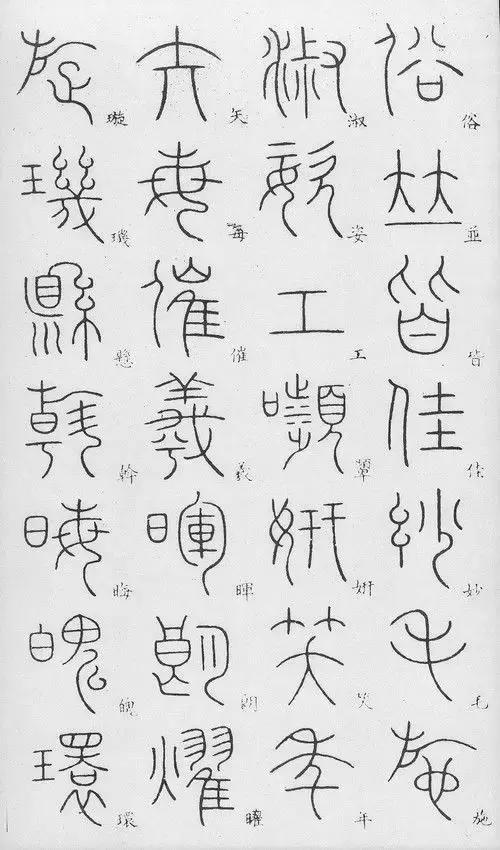 俗並皆佳妙毛施
淑姿工顰姸笑年
矢每催羲暉朗曜
璇璣懸斡晦魄環